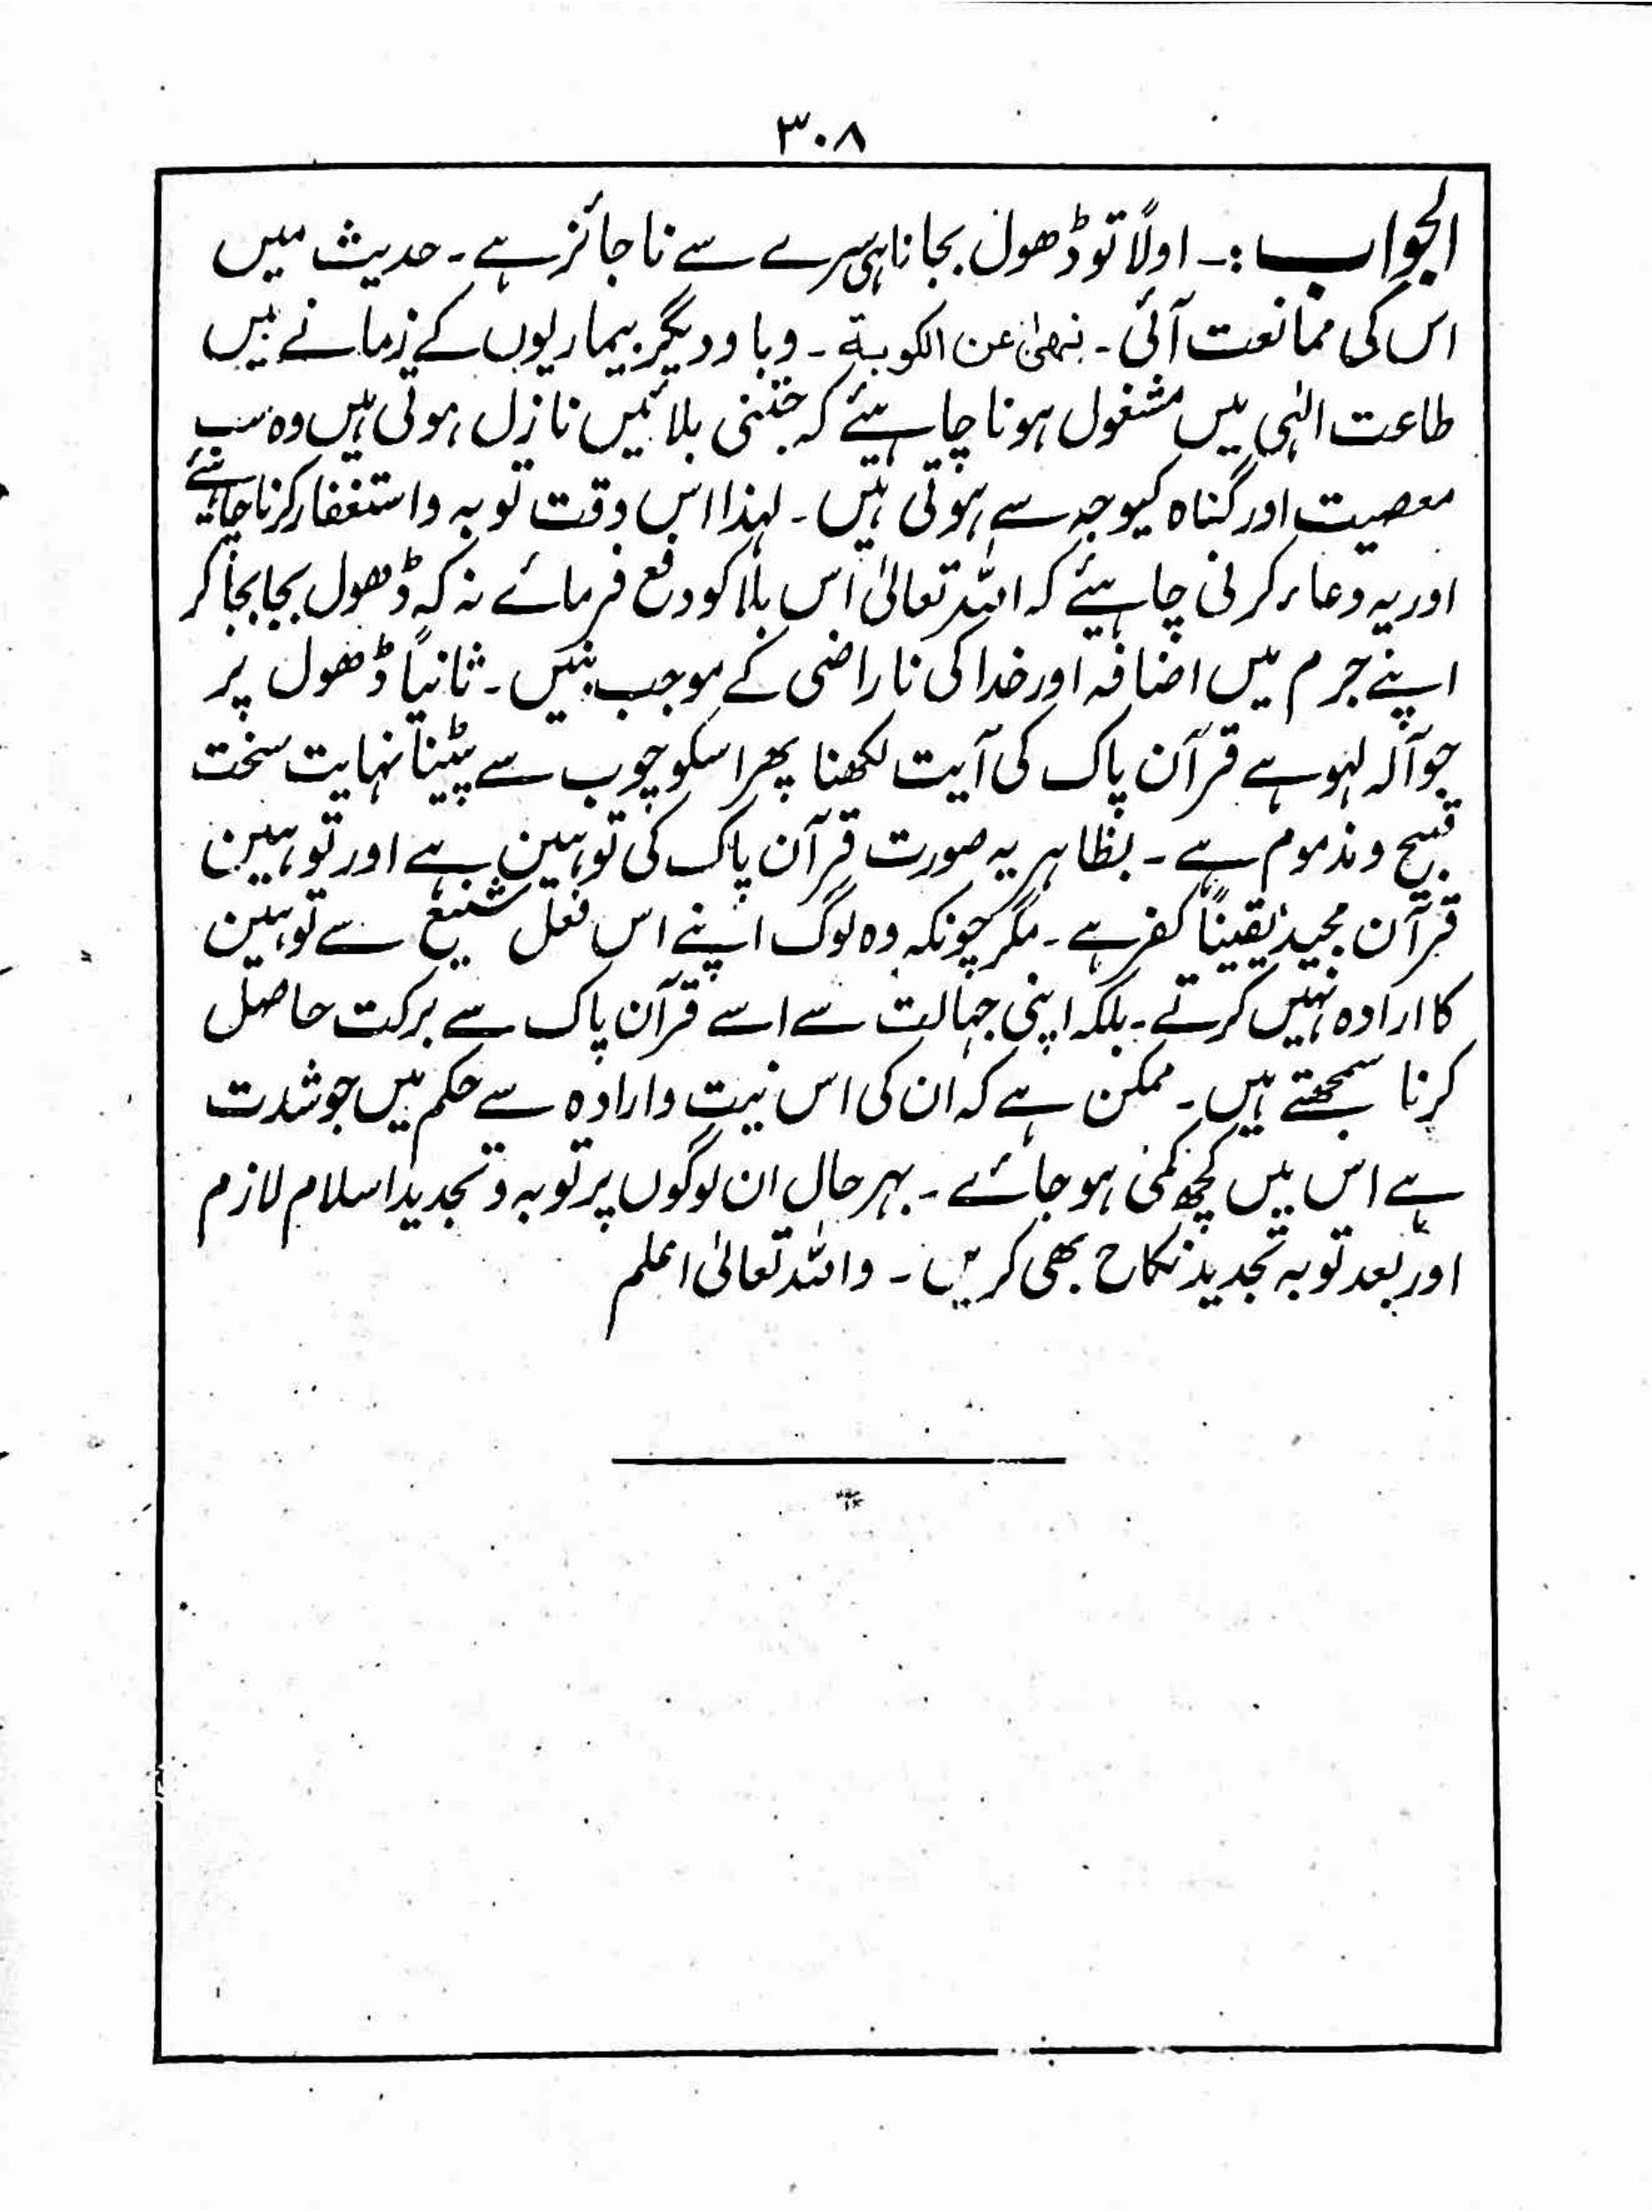 ۳۰۸
الجواب :۔ اولًا تو ڈھول بجانا ہی سرے سے ناجائز ہے۔ حدیث میں
اس کی ممانعت آئی۔ نہیٰ عن الکوبۃ۔ وبا و دیگر بیماریوں کے زمانے میں
طاعت الہٰی میں مشغول ہونا چاہیئے کہ جتنی بلائیں نازل ہوتی ہیں وہ سب
معصیت اور گناہ کیوجہ سے ہوتی ہیں۔ لہذا اس وقت توبہ واستغفار کرنا چاہیئے
اور یہ دعاء کرنی چاہیئے کہ اللہ تعالیٰ اس بلا کو دفع فرمائے نہ کہ ڈھول بجا بجا کر
اپنے جرم میں اضافہ اور خدا کی ناراضی کے موجب بنیں۔ ثانیاً ڈھول پر
جو آلہ لہو ہے قرآن پاک کی آیت لکھنا پھر اسکو چوب سے پٹینا نہایت سخت
قبیح و مذموم ہے۔ بظاہر یہ صورت قرآن پاک کی توہین ہے اور توہین
قرآن مجید یقیناً کفر ہے۔ مگر چونکہ وہ لوگ اپنے اس فعل شنیع سے توہین
کا ارادہ نہیں کرتے۔ بلکہ اپنی جہالت سے اسے قرآن پاک سے برکت حاصل
کرنا سمجھتے ہیں۔ ممکن ہے کہ ان کی اس نیت وارادہ سے حکم میں جو شدت
ہے اس میں کچھ کمی ہو جائے۔ بہر حال ان لوگوں پر توبہ و تجدید اسلام لازم
اور بعد توبہ تجدید نکاح بھی کریں۔ واللہ تعالیٰ اعلم